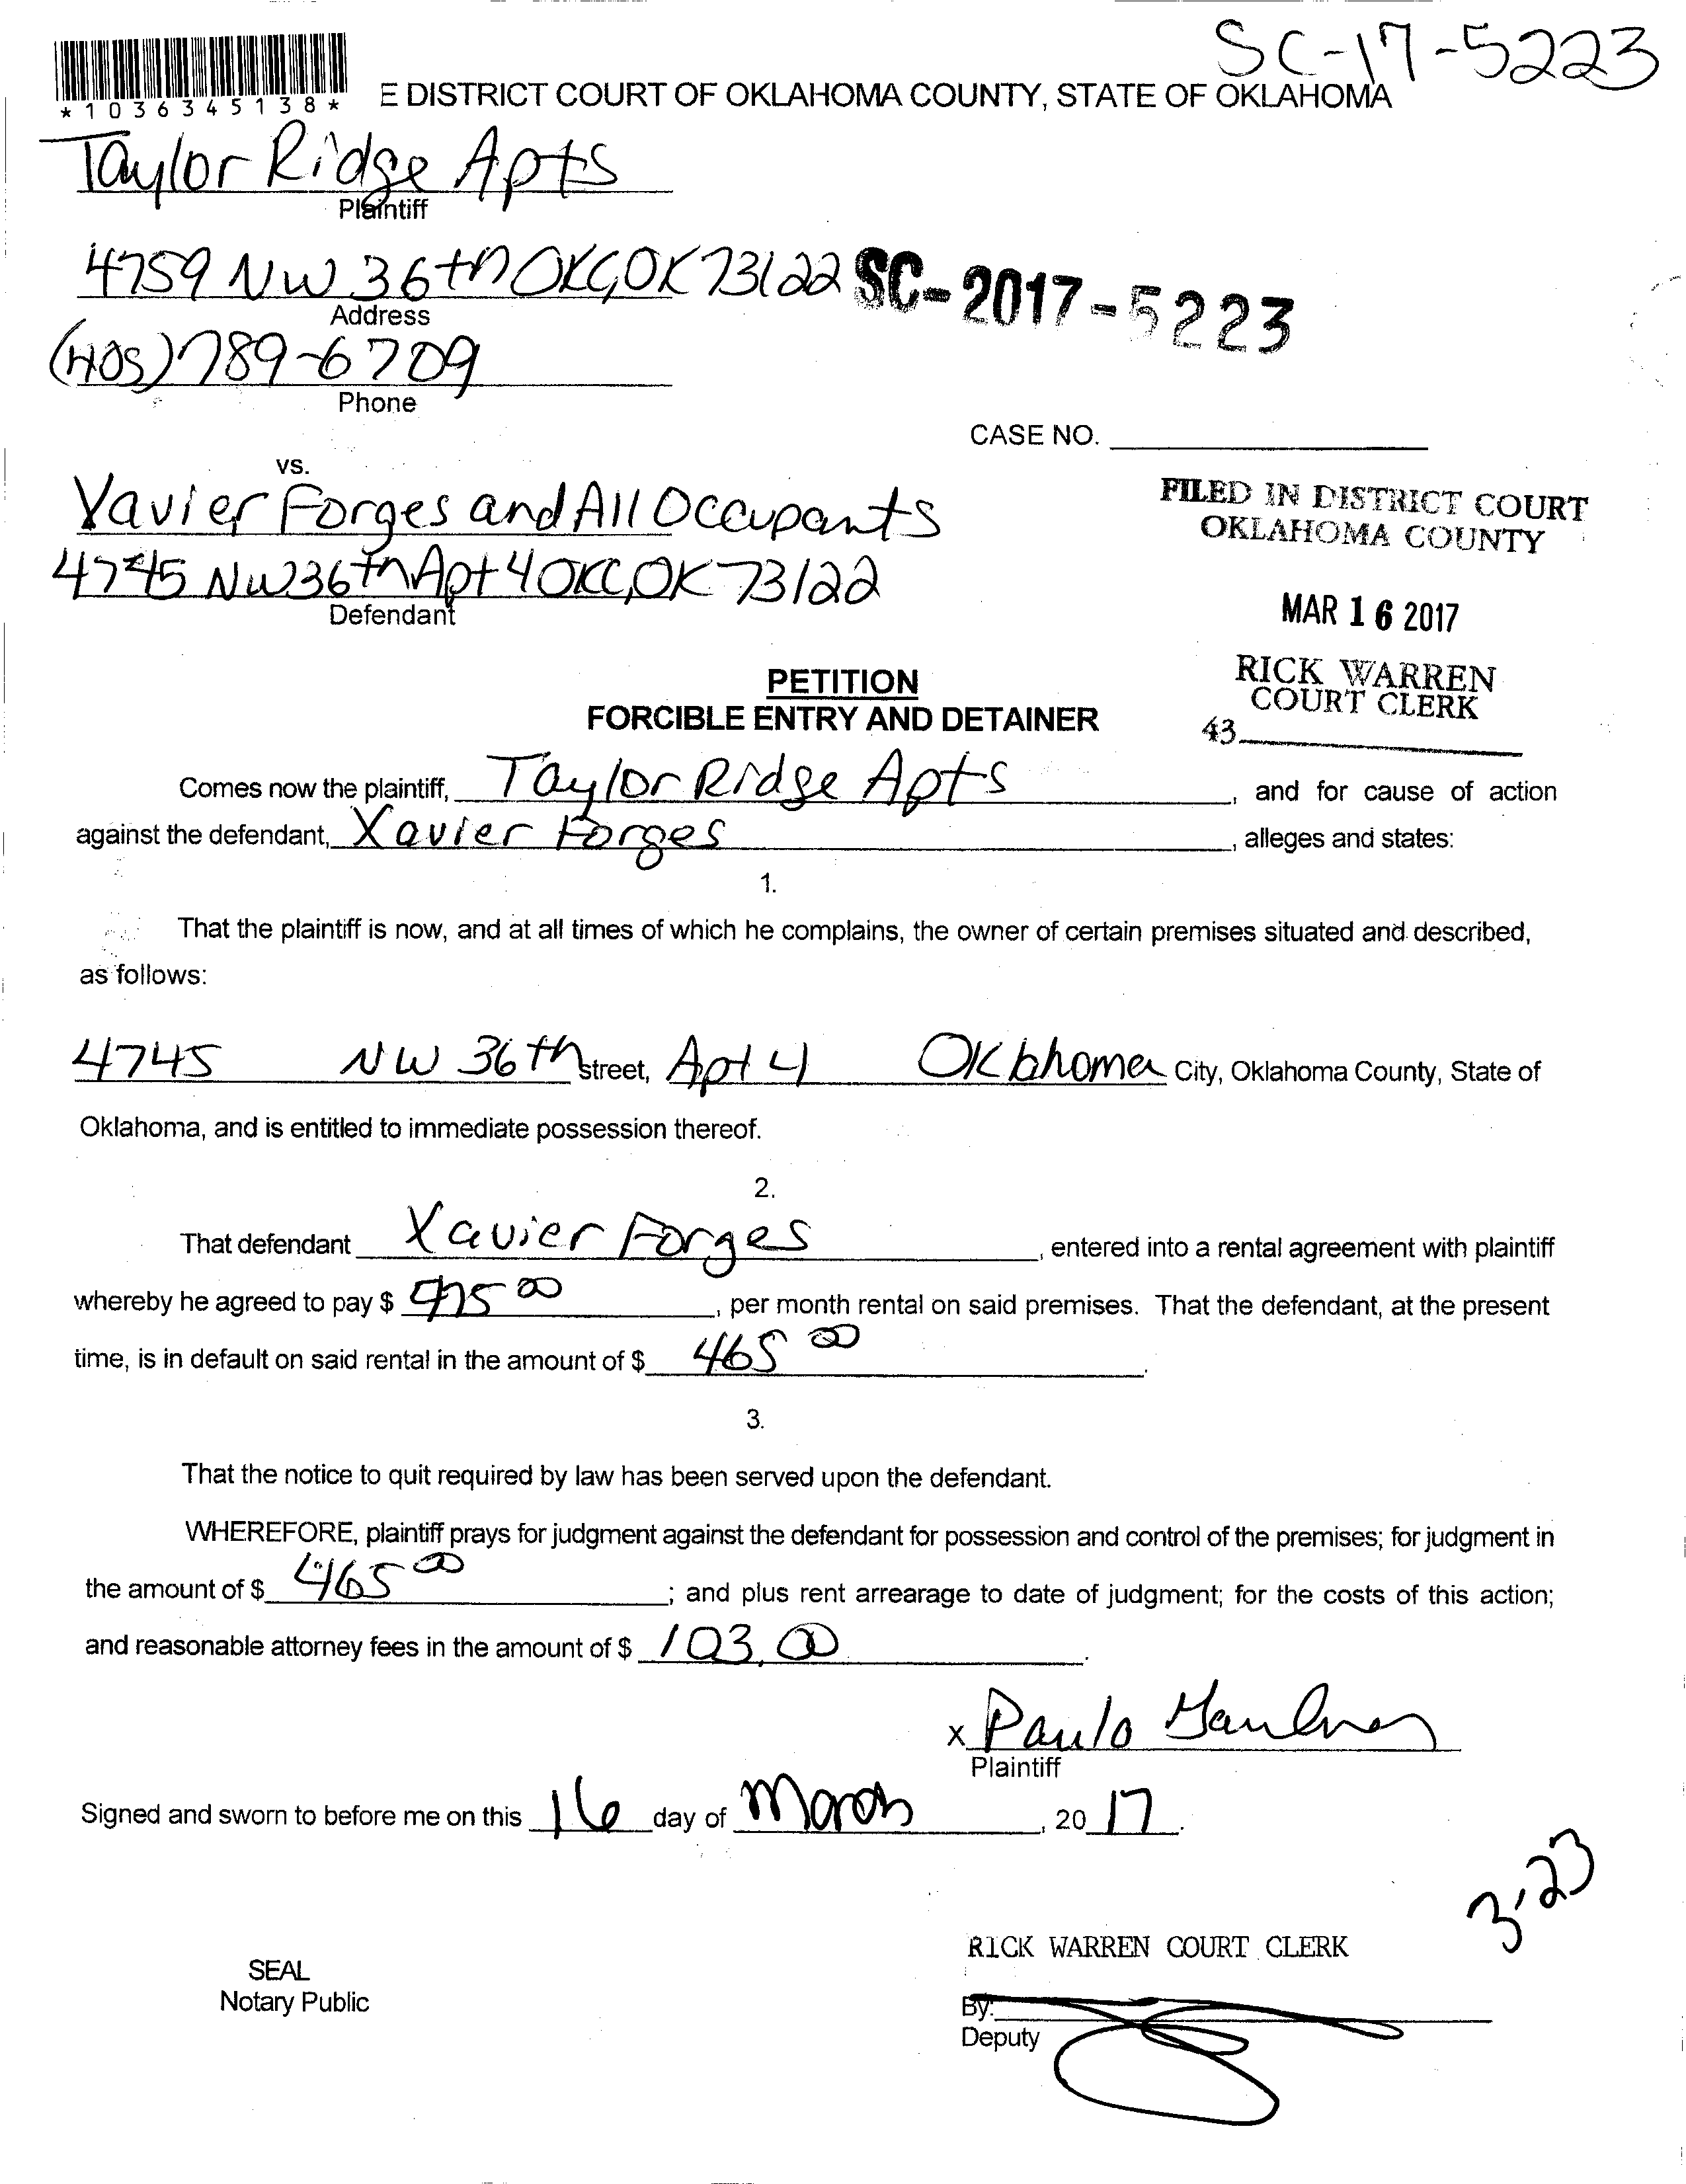 SC-17-5223
*1036345138*
E DISTRICT COURT OF OKLAHOMA COUNTY, STATE OF OKLAHOMA
Taylor Ridge Apts
Plaintiff
4759 NW 36th OKC, OK 73122
SC-2017-5223
Address
(405) 789-6709
Phone
CASE NO.
vs.
Xavier Forges and All Occupants
4745 NW 36th Apt 4 OKC, OK 73122
Defendant
FILED IN DISTRICT COURT
OKLAHOMA COUNTY
MAR 16 2017
RICK WARREN
COURT CLERK
43
PETITION
FORCIBLE ENTRY AND DETAINER
Comes now the plaintiff, Taylor Ridge Apts, and for cause of action
against the defendant, Xavier Forges, alleges and states:
1.
That the plaintiff is now, and at all times of which he complains, the owner of certain premises situated and described,
as follows:
4745 NW 36th street, Apt 4 Oklahoma City, Oklahoma County, State of
Oklahoma, and is entitled to immediate possession thereof.
2.
That defendant Xavier Forges, entered into a rental agreement with plaintiff
whereby he agreed to pay $ 00, per month rental on said premises. That the defendant, at the present
time, is in default on said rental in the amount of $ 465 00.
3.
That the notice to quit required by law has been served upon the defendant.
WHEREFORE, plaintiff prays for judgment against the defendant for possession and control of the premises; for judgment in
the amount of $ 465 00; and plus rent arrearage to date of judgment; for the costs of this action;
and reasonable attorney fees in the amount of $ 103.00.
x
Plaintiff
Signed and sworn to before me on this 16 day of March, 2017.
3-23
RICK WARREN COURT CLERK
SEAL
Notary Public
By:
Deputy